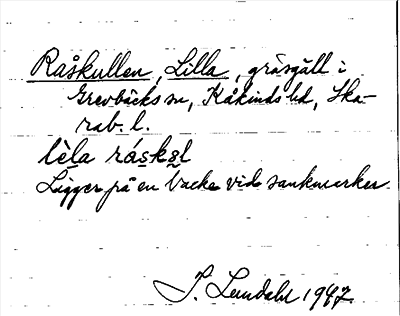 Råskullen, Lilla, gräsgäll i
Grevbäcks sn, Kåkinds hd, Ska-
rab. l.
lèla ráskəl
Ligger på en backe vid sankmarker.
J. Lundahl 1947.